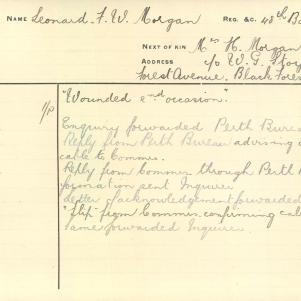 NAME Leonard. F. W. Morgan REG. &C. 48th Ba
NEXT OF KIN Mrs H. Morgan
ADDRESS c/o W. G. Stoy
Forest Avenue, Black Fores
"Wounded 2nd occasion".
Enquiry forwarded Perth Burea
Reply from Perth Bureau advising
cable to Commr.
Reply from Commr through Perth
formation sent Inquirer
Letter of acknowledgement forwarded
"Slip" from Commr. confirming cabl
same forwarded Inquirer.